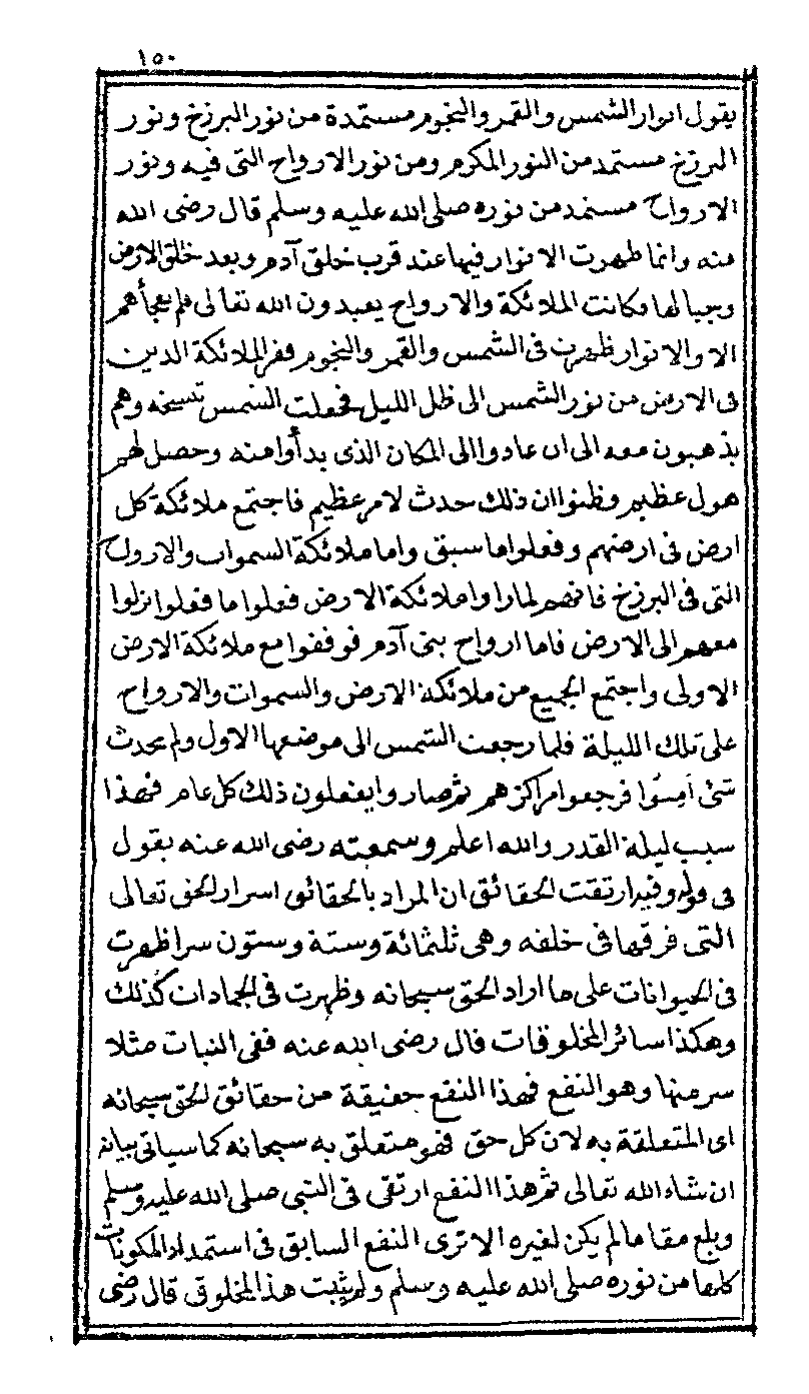 ١٥٠
يقول انوار الشمس والقمر والنجوم مستمدة من نور البرزخ ونور
البرزخ مستمد من النور المكرم ومن نور الارواح التى فيه ونور
الارواح مستمد من نوره صلى الله عليه وسلم قال رضى الله
عنه وانما ظهرت الانوار فيها عند قرب خلق آدم وبعد خلق الارض
وجبالها فكانت الملائكة والارواح يعبدون الله تعالى فلم يفجأهم
الا والانوار ظهرت فى الشمس والقمر والنجوم ففر الملائكة الذين
فى الارض من نور الشمس الى ظل الليل فجعلت الشمس تنسخه وهم
يذهبون معه الى ان عادوا الى المكان الذى بدأوا منه وحصل لهم
هول عظيم وظنوا ان ذلك حدث لامر عظيم فاجتمع ملائكة كل
ارض فى ارضهم وفعلوا ما سبق واما ملائكة السموات والارواح
التى فى البرزخ فانهم لما راوا ملائكة الارض فعلوا ما فعلوا نزلوا
معهم الى الارض فاما ارواح بنى آدم فوقفوا مع ملائكة الارض
الاولى واجتمع الجميع من ملائكة الارض والسموات والارواح
على تلك الليلة فلما رجعت الشمس الى موضعها الاول ولم يحدث
شئ أمنوا فرجعوا مراكزهم ثم صاروا يفعلون ذلك كل عام فهذا
سبب ليلة القدر والله اعلم وسمعته رضى الله عنه يقول
فى قوله وفيه ارتقت الحقائق ان المراد بالحقائق اسرار الحق تعالى
التى فرقها فى خلقه وهى ثلثمائة وستة وستون سرا ظهرت
فى الحيوانات على ما اراد الحق سبحانه وظهرت فى الجمادات كذلك
وهكذا سائر المخلوقات قال رضى الله عنه ففى النبات مثلا
سر منها وهو النفع فهذا النفع حقيقة من حقائق الحق سبحانه
اى المتعلقة به لان كل حق فهو متعلق به سبحانه كما سياتى بيانه
ان شاء الله تعالى ثم هذا النفع ارتقى فى النبى صلى الله عليه وسلم
وبلغ مقاما لم يكن لغيره الا ترى النفع السابق فى استمداد المكونات
كلها من نوره صلى الله عليه وسلم ولم يثبت هذا لمخلوق قال رضى